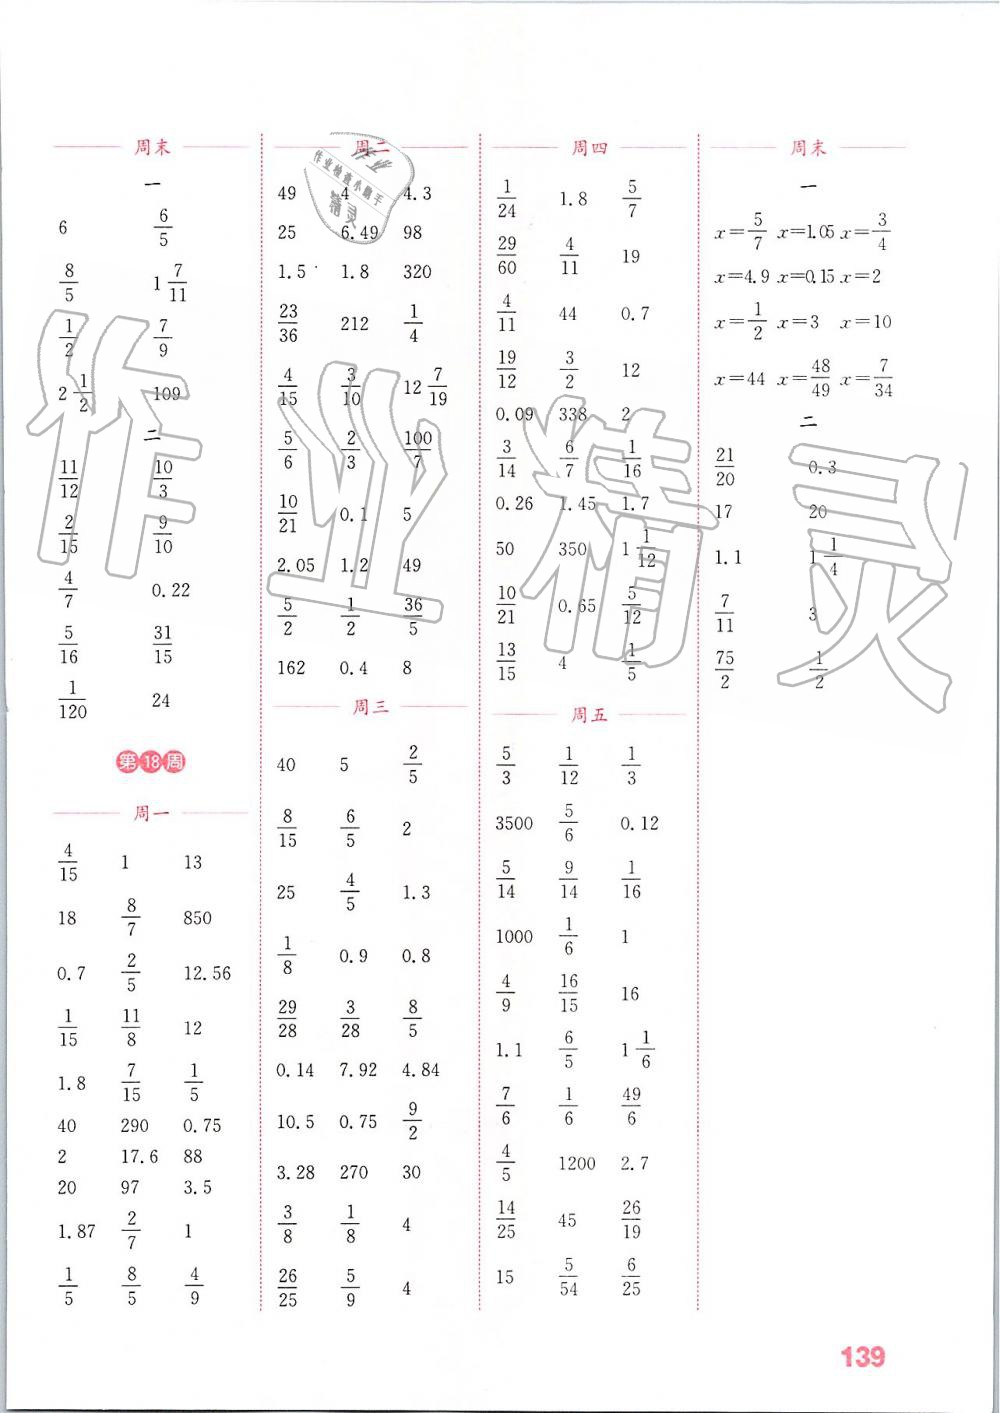 周末
一
6 6/5
8/5 1 7/11
1/2 7/9
2 1/2 109
二
11/12 10/3
2/15 9/10
4/7 0.22
5/16 31/15
1/120 24
第18周
周一
4/15 1 13
18 8/7 850
0.7 2/5 12.56
1/15 11/8 12
1.8 7/15 1/5
40 290 0.75
2 17.6 88
20 97 3.5
1.87 2/7 1
1/5 8/5 4/9
周二
49 4 4.3
25 6.49 98
1.5 1.8 320
23/36 212 1/4
4/15 3/10 12 7/19
5/6 2/3 100/7
10/21 0.1 5
2.05 1.2 49
5/2 1/2 36/5
162 0.4 8
周三
40 5 2/5
8/15 6/5 2
25 4/5 1.3
1/8 0.9 0.8
29/28 3/28 8/5
0.14 7.92 4.84
10.5 0.75 9/2
3.28 270 30
3/8 1/8 4
26/25 5/9 4
周四
1/24 1.8 5/7
29/60 4/11 19
4/11 44 0.7
19/12 3/2 12
0.09 338 2
3/14 6/7 1/16
0.26 1.45 1.7
50 350 1 1/12
10/21 0.65 5/12
13/15 4 1/5
周五
5/3 1/12 1/3
3500 5/6 0.12
5/14 9/14 1/16
1000 1/6 1
4/9 16/15 16
1.1 6/5 1 1/6
7/6 1/6 49/6
4/5 1200 2.7
14/25 45 26/19
15 5/54 6/25
周末
一
x=5/7 x=1.05 x=3/4
x=4.9 x=0.15 x=2
x=1/2 x=3 x=10
x=44 x=48/49 x=7/34
二
21/20 0.3
17 20
1.1 1 1/4
7/11 3
75/2 1/2
139
作业检查小助手
精灵
作业精灵